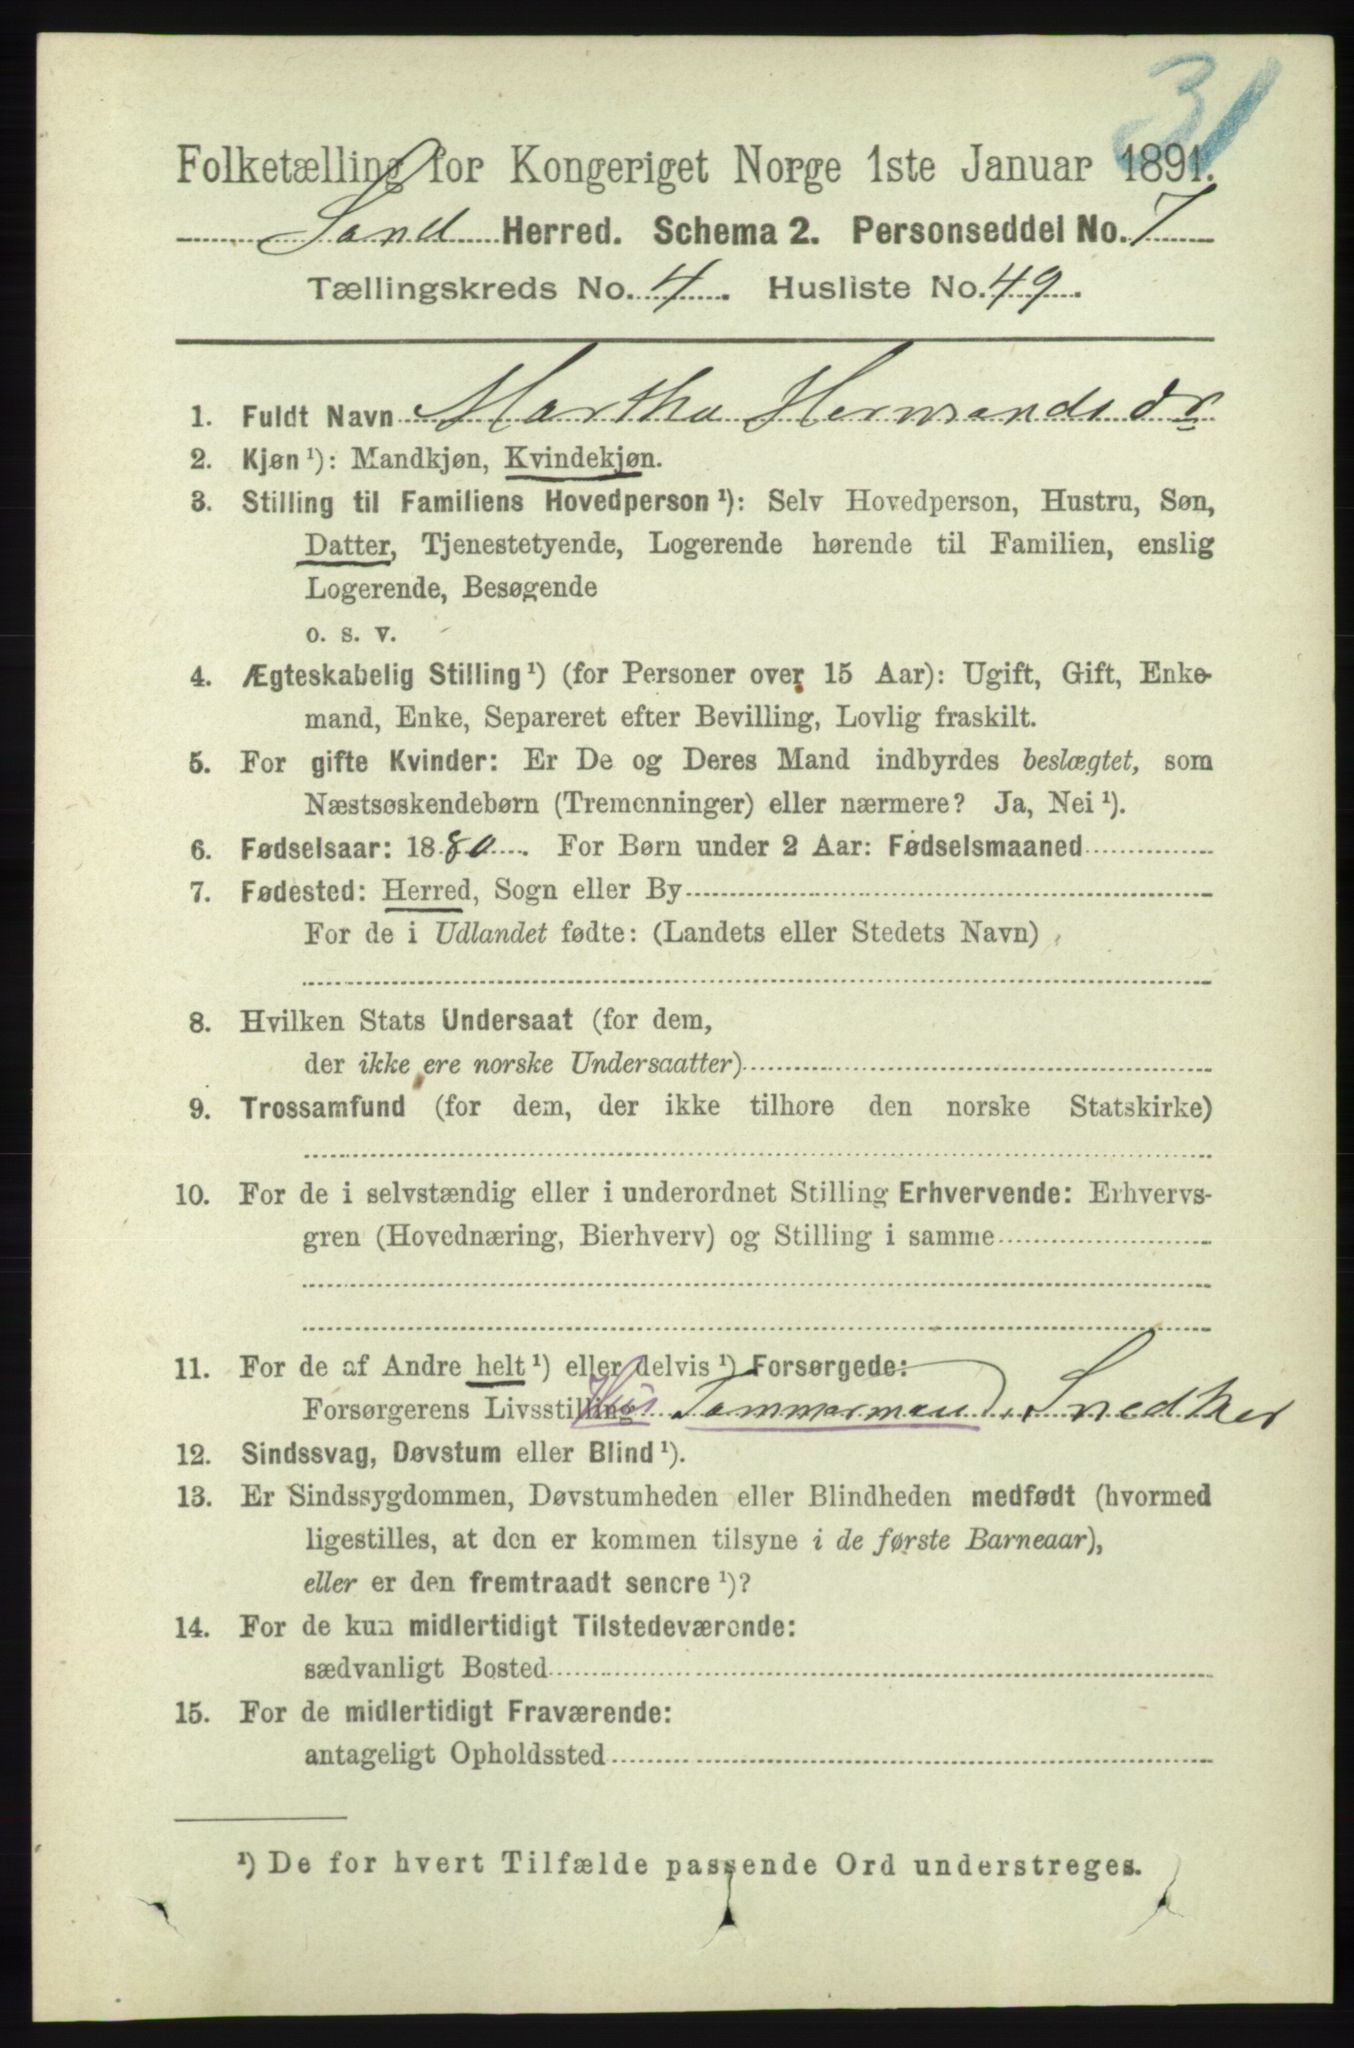 31
Folketælling for Kongeriget Norge 1ste Januar 1891.
Sand Herred. Schema 2. Personseddel No. 7
Tællingskreds No. 4. Husliste No. 49.
1. Fuldt Navn Martha Hermandsdr
2. Kjøn ¹): Mandkjøn, Kvindekjøn.
3. Stilling til Familiens Hovedperson ¹): Selv Hovedperson, Hustru, Søn,
Datter, Tjenestetyende, Logerende hørende til Familien, enslig
Logerende, Besøgende
o. s. v.
4. Ægteskabelig Stilling ¹) (for Personer over 15 Aar): Ugift, Gift, Enke-
mand, Enke, Separeret efter Bevilling, Lovlig fraskilt.
5. For gifte Kvinder: Er De og Deres Mand indbyrdes beslægtet, som
Næstsøskendebørn (Tremenninger) eller nærmere? Ja, Nei ¹).
6. Fødselsaar: 1880. For Børn under 2 Aar: Fødselsmaaned
7. Fødested: Herred, Sogn eller By
For de i Udlandet fødte: (Landets eller Stedets Navn)
8. Hvilken Stats Undersaat (for dem,
der ikke ere norske Undersaatter)
9. Trossamfund (for dem, der ikke tilhøre den norske Statskirke)
10. For de i selvstændig eller i underordnet Stilling Erhvervende: Erhvervs-
gren (Hovednæring, Bierhverv) og Stilling i samme
11. For de af Andre helt ¹) eller delvis ¹) Forsørgede:
Forsørgerens Livsstilling Hus Tømmermand, Snedker
12. Sindssvag, Døvstum eller Blind ¹).
13. Er Sindssygdommen, Døvstumheden eller Blindheden medfødt (hvormed
ligestilles, at den er kommen tilsyne i de første Barneaar),
eller er den fremtraadt senere ¹)?
14. For de kun midlertidigt Tilstedeværende:
sædvanligt Bosted
15. For de midlertidigt Fraværende:
antageligt Opholdssted
¹) De for hvert Tilfælde passende Ord understreges.